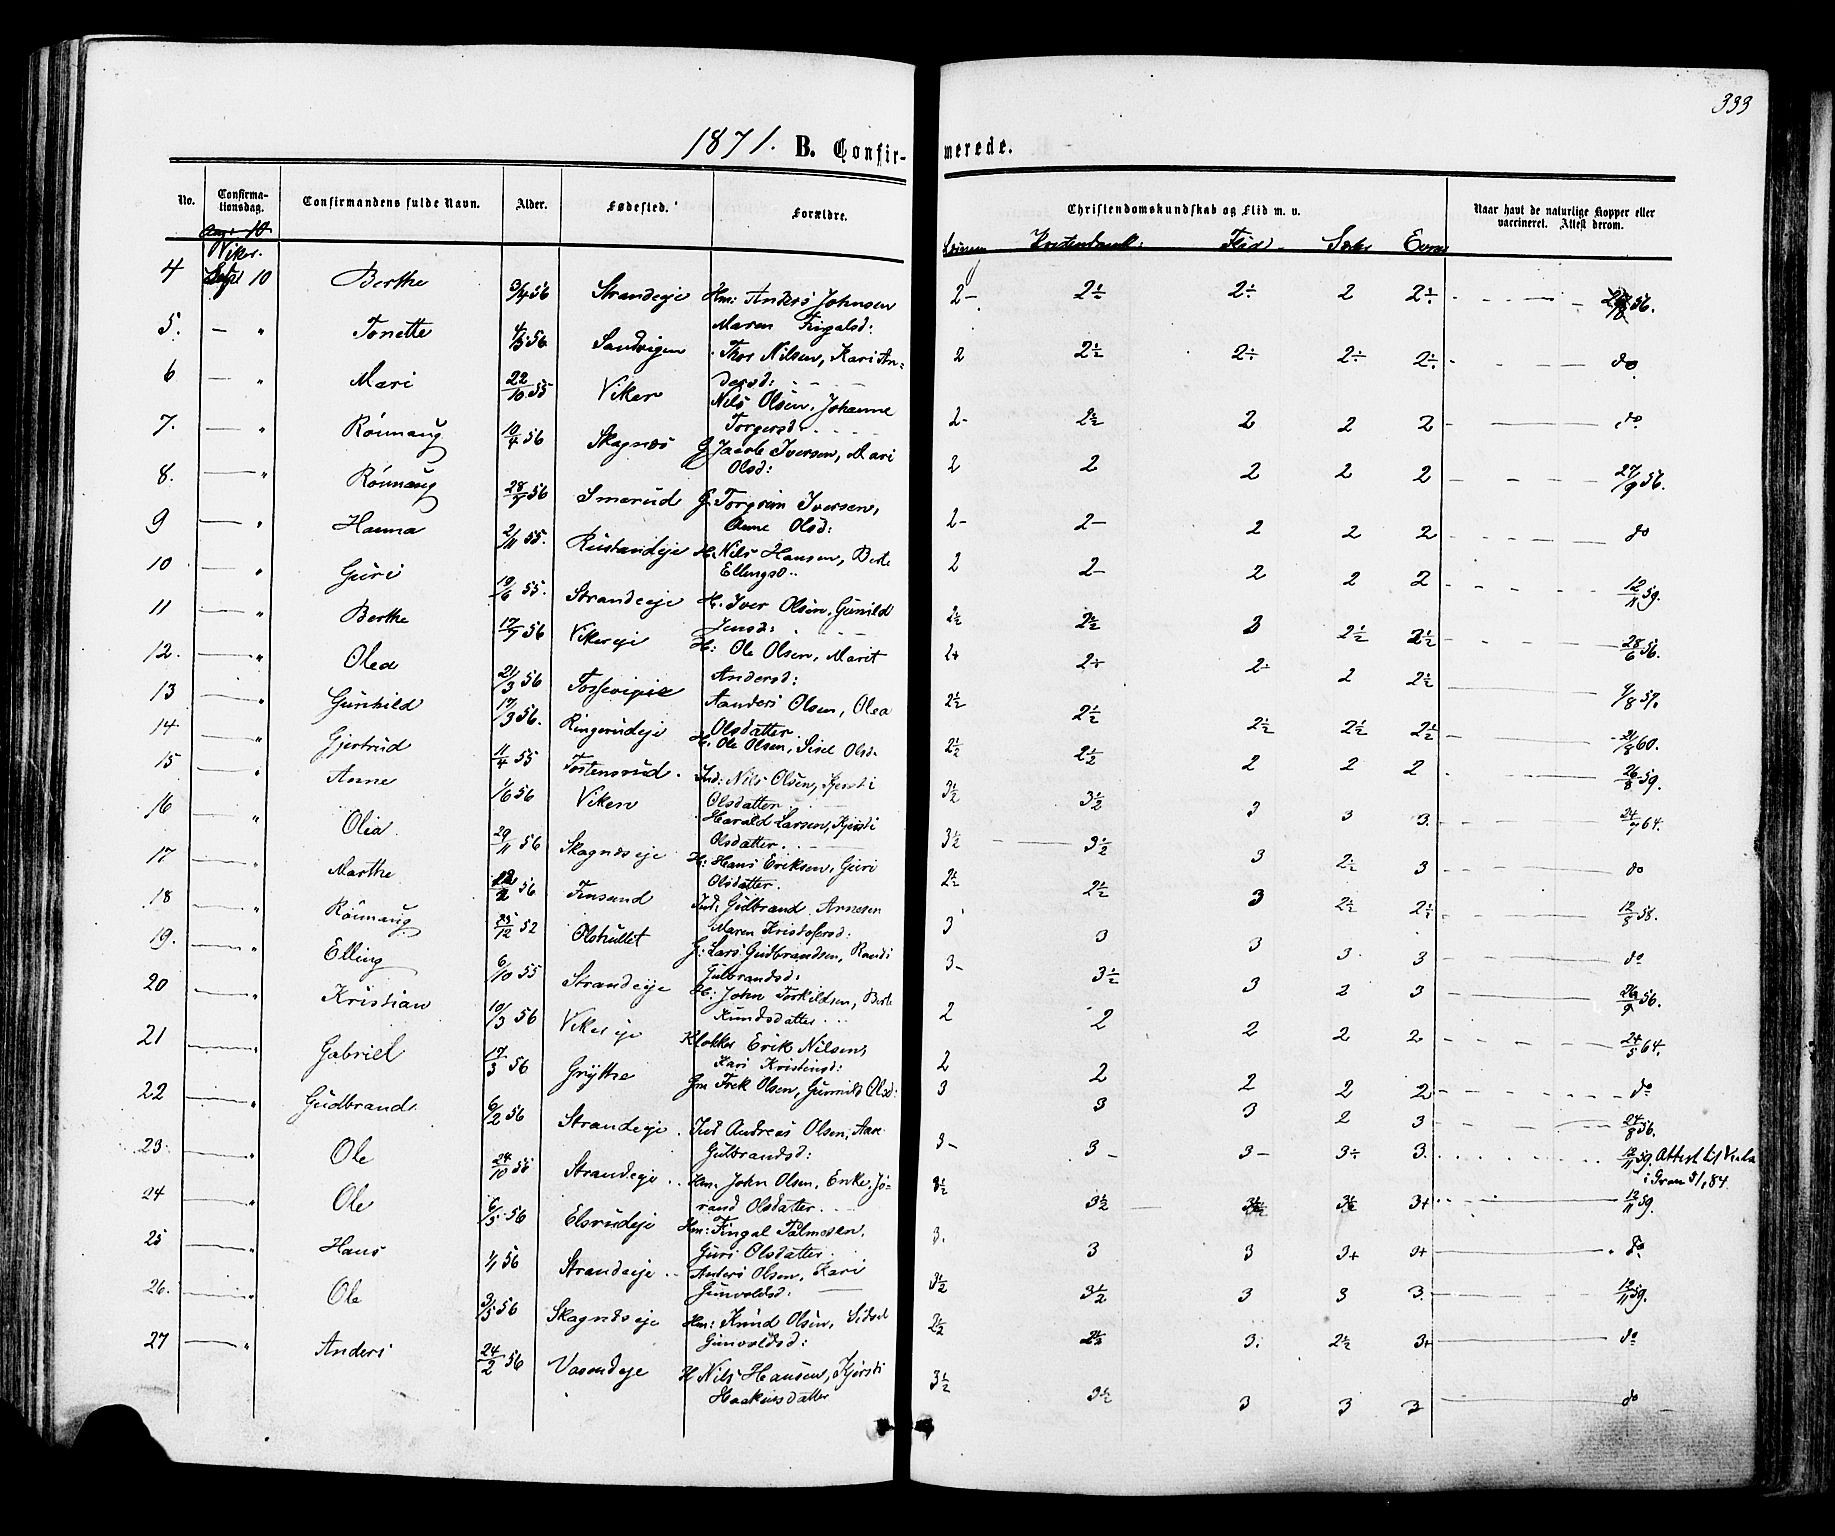 333
1871. B. Confirmerede.
No. Confirmationsdag. Confirmandens fulde Navn. Alder. Fødested. Forældre. Christendomskundskab og Flid m. v. Naar havt de naturlige Kopper eller vaccineret. Attest derom.
Aug. 10
Viker.
4 Sept 10 Berthe 3/4 56 Strandeje Hm: Anders Johnsen 2- 2½ 2÷ 2 2÷ 56.
Maren Fingalsd:
5. - " Tonette 4/5 56 Sandvigen Thor Nilsen, Kari An- 2 2½ 2÷ 2÷ 2÷ do
dersd:
6 - " Mari 22/10 55 Viker Nils Olsen, Johanne 2- 2½ 2 2 2 do
Torgersd.
7. - " Rønnaug 10/4 56 Skagnæs G Jacob Iversen, Mari 2 2 2 2 2 27/9 56.
Olsd:
8. - " Rønnaug 28/7 56 Smerud G. Torgrim Iversen, 2- 2- 2 2 2 do
Anne Olsd:
9 - " Hanna 2/11 55. Rustandeje H. Nils Hansen, Berte 2 2- 2 2 2 12/11 59.
Ellingsd..
10 - " Guri 19/6 55. Strandeeje H. Iver Olsen, Gunild 2½ 2½ 3 2½ 2½ 28/6 56.
Jensd:
11 - " Berthe 17/7 56 Vikereje H: Ole Olsen, Marit 2+ 2+ 2÷ 2 2½ 9/8 57.
Andersd:
12. - " Olea 21/3 56 Aanders Olsen, Olea 2½ 2½ 2½ 2½ 2½ 21/8 60.
Olsdatter
13 - " Gunhild 17/3 56. Ringerudeje H. Ole Olsen, Sisel Olsd. 2½ 2½ 2 2 2 26/8 59.
14 - " Gjertrud 11/4 55 Tostensrud. Ind: Nils Olsen, Kjersti 3½ 3½ 3 3 3. 24/7 64.
Olsdatter
15 - " Anne 1/6 56 Viker Harald Larsen, Kjersti 3½ 3½ 3 2½ 3 do
Olsdatter.
16 - " Olia 29/11 56 Skagnæseje H: Hans Eriksen, Guri 2½ 2½ 3 2½ 2½ 12/8 58.
Olsdatter.
17 - " Marthe 22/2 56 Finsand Ind. Gulbrand Arnesen 3 3 3 3. 3 do
Maren Kristofersd:
18 - " Rønnaug 25/12 52 Olshullet G: Lars Gudbrandsen, Randi 3- 3½ 3 2 3 26/9 56.
Gulbrandsd:
19. - " Elling 6/10 55 Strandeje H: John Torkildsen, Berte 2 2 2 2 2 24/5 64.
Knudsdatter
20 - " Kristian 10/3 56 Vikereje Klokker Erik Nilsen, 2 2 2 2 2 do
Kari Kristensd:
21 - " Gabriel 17/3 56 Grythe Gm Frek Olsen, Gunnild Olsd: 3 3 3 2 3 24/8 56.
22 - " Gudbrand 6/2 56 Strandeje. Ind Andreas Olsen, 3- 3- 3- 3÷ 3. 12/11 59. Attest til
Gulbrandsd: i Gran 84.
23. - " Ole 24/10 55 Strandeje.. Hm. John Olsen, Enke, Jø- 3½ 3½ 3½ 3½ 3+ 12/11 59.
rand Olsdatter.
24 - " Ole 6/5 56 Elsrudeje Hm: Fingal Palmesen, 3. 3 3 3+ 3+ do
Guri Olsdatter.
25 - " Hans 1/1 56 Strandeeje.. Anders Olsen, Kari 3½ 3½ 3 3 3. 12/11 59.
Gunvoldsd:
26. - " Ole 3/5 56 Skagnæseje Hm: Knud Olsen, Sidsel 2½ 2½ 3. 2½ 3+ do
Gunvoldsd:
27 - " Anders 24/2 56 Vasendeje H Nils Hansen, Kjersti 3½ 3½ 3 3 3 do
Haakensdatter